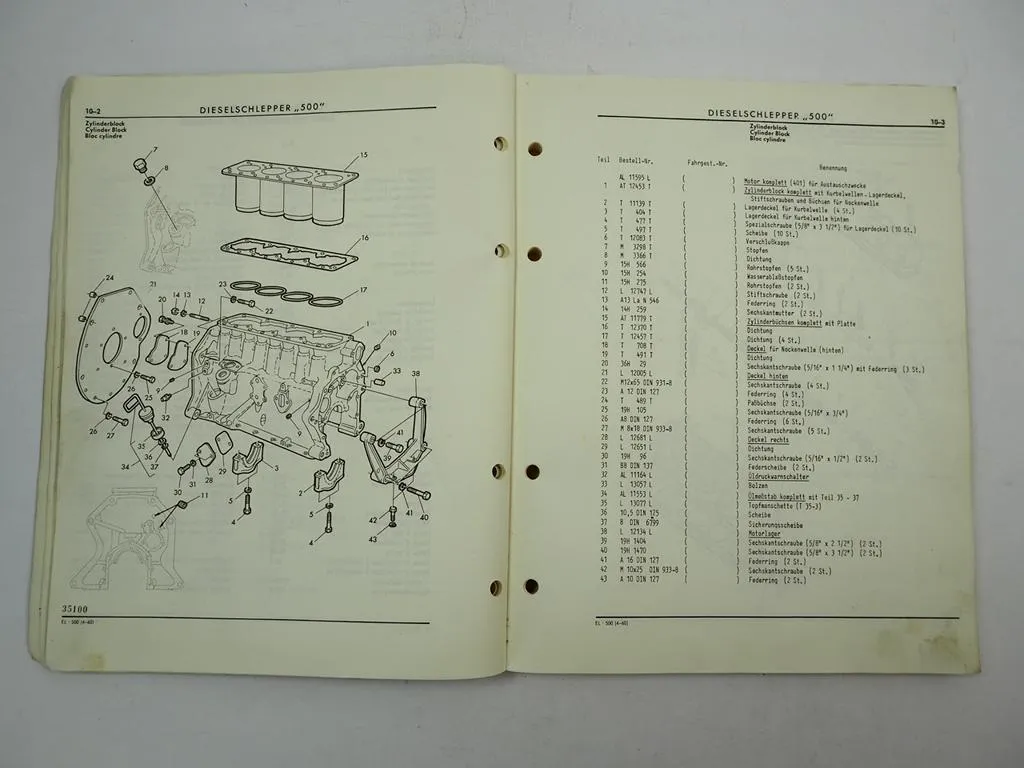 10-2
DIESELSCHLEPPER „500"
Zylinderblock
Cylinder Block
Bloc cylindre
7
8
15
16
17
24
21
20 14 13 12
23
22
19
18
1
10
6
33
38
26 25
9
32
26
27
35
36
34 37
30 31 28 29
3
5
4
2
5
4
9
41
39
42 41 40
43
11
35100
EL - 500 (4-60)
DIESELSCHLEPPER „500"
10-3
Zylinderblock
Cylinder Block
Bloc cylindre
Teil Bestell-Nr. Fahrgest.-Nr. Benennung
AL 11595 L ( ) Motor komplett (401) für Austauschzwecke
1 AT 12453 T ( ) Zylinderblock komplett mit Kurbelwellen-Lagerdeckel,
Stiftschrauben und Büchsen für Nockenwelle
2 T 11139 T ( ) Lagerdeckel für Kurbelwelle (4 St.)
3 T 404 T ( ) Lagerdeckel für Kurbelwelle hinten
4 T 477 T ( ) Spezialschraube (5/8" x 3 1/2") für Lagerdeckel (10 St.)
5 T 497 T ( ) Scheibe (10 St.)
6 T 12083 T ( ) Verschlußkappe
7 M 3298 T ( ) Stopfen
8 M 3366 T ( ) Dichtung
9 15H 566 ( ) Rohrstopfen (5 St.)
10 15H 254 ( ) Wasserablaßstopfen
11 15H 275 ( ) Rohrstopfen (2 St.)
12 L 12747 L ( ) Stiftschraube (2 St.)
13 A13 La N 546 ( ) Federring (2 St.)
14 14H 259 ( ) Sechskantmutter (2 St.)
15 AT 11779 T ( ) Zylinderbüchsen komplett mit Platte
16 T 12370 T ( ) Dichtung
17 T 12457 T ( ) Dichtung (4 St.)
18 T 708 T ( ) Deckel für Nockenwelle (hinten)
19 T 491 T ( ) Dichtung
20 36H 29 ( ) Sechskantschraube (5/16" x 1 1/4") mit Federring (3 St.)
21 L 12005 L ( ) Deckel hinten
22 M12x65 DIN 931-8 ( ) Sechskantschraube (4 St.)
23 A 12 DIN 127 ( ) Federring (4 St.)
24 T 489 T ( ) Paßbüchse (2 St.)
25 19H 105 ( ) Sechskantschraube (5/16" x 3/4")
26 A8 DIN 127 ( ) Federring (6 St.)
27 M 8x18 DIN 933-8 ( ) Sechskantschraube (5 St.)
28 L 12681 L ( ) Deckel rechts
29 L 12651 L ( ) Dichtung
30 19H 96 ( ) Sechskantschraube (5/16" x 1/2") (2 St.)
31 B8 DIN 137 ( ) Federscheibe (2 St.)
32 AL 11164 L ( ) Öldruckwarnschalter
33 L 13057 L ( ) Bolzen
34 AL 11553 L ( ) Ölmeßstab komplett mit Teil 35 - 37
35 L 13077 L ( ) Topfmanschette (T 35-3)
36 10,5 DIN 125 ( ) Scheibe
37 8 DIN 6799 ( ) Sicherungsscheibe
38 L 12134 L ( ) Motorlager
39 19H 1404 ( ) Sechskantschraube (5/8" x 2 1/2") (2 St.)
40 19H 1470 ( ) Sechskantschraube (5/8" x 3 1/2") (2 St.)
41 A 16 DIN 127 ( ) Federring (2 St.)
42 M 10x25 DIN 933-8 ( ) Sechskantschraube (2 St.)
43 A 10 DIN 127 ( ) Federring (2 St.)
EL - 500 (4-60)